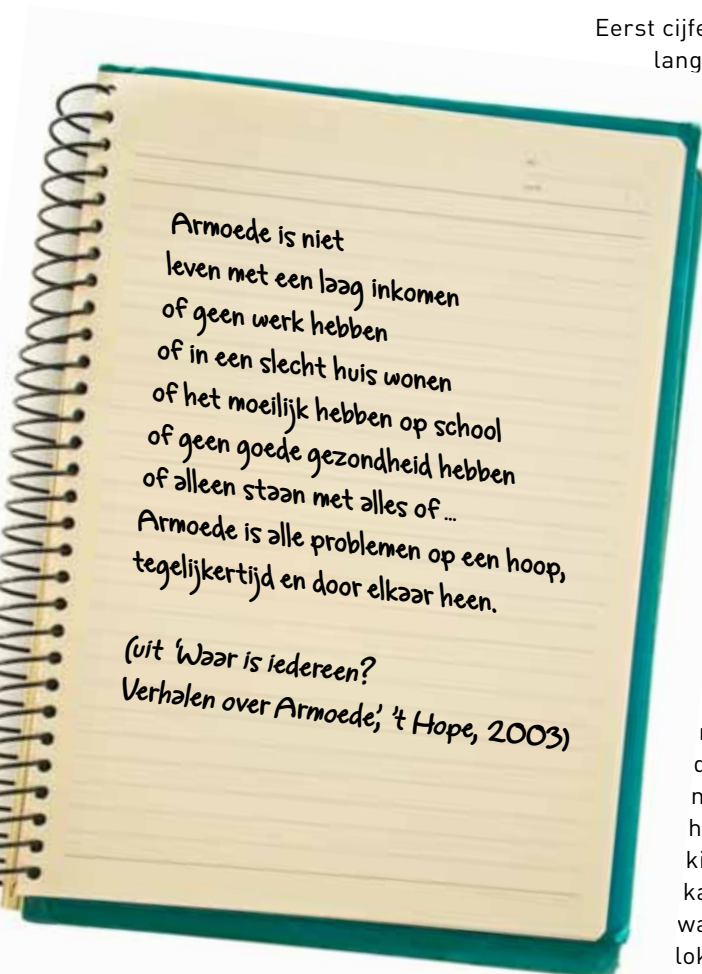 Eerst
lang
Armoede is niet
leven met een laag inkomen
of geen werk hebben
of in een slecht huis wonen
of het moeilijk hebben op school
of geen goede gezondheid hebben
of alleen staan met alles of ...
Armoede is alle problemen op een hoop,
tegelijkertijd en door elkaar heen.
(uit ‘Waar is iedereen?
Verhalen over Armoede’, ’t Hope, 2003)